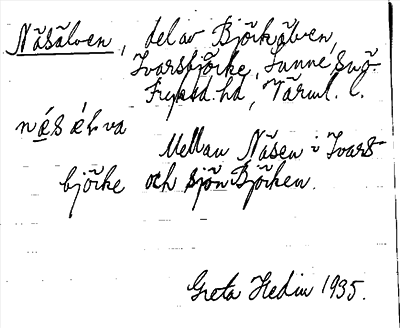 Näsälven, del av Björkälven,
Ivarsbjörke, Sunne, svö
Fryksd. hd, Värml. l.
nä́s ä̀l va
Mellan Näsen i Ivars-
björke och sjön Björken.
Greta Hedin 1935.